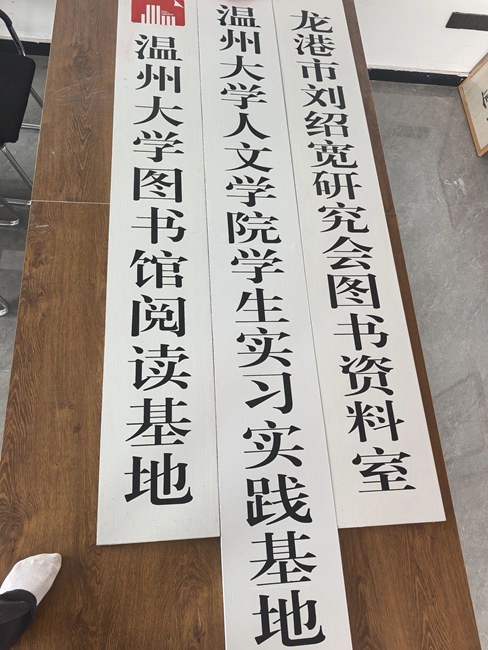 龙港市刘绍宽研究会图书资料室
温州大学人文学院学生实习实践基地
温州大学图书馆阅读基地